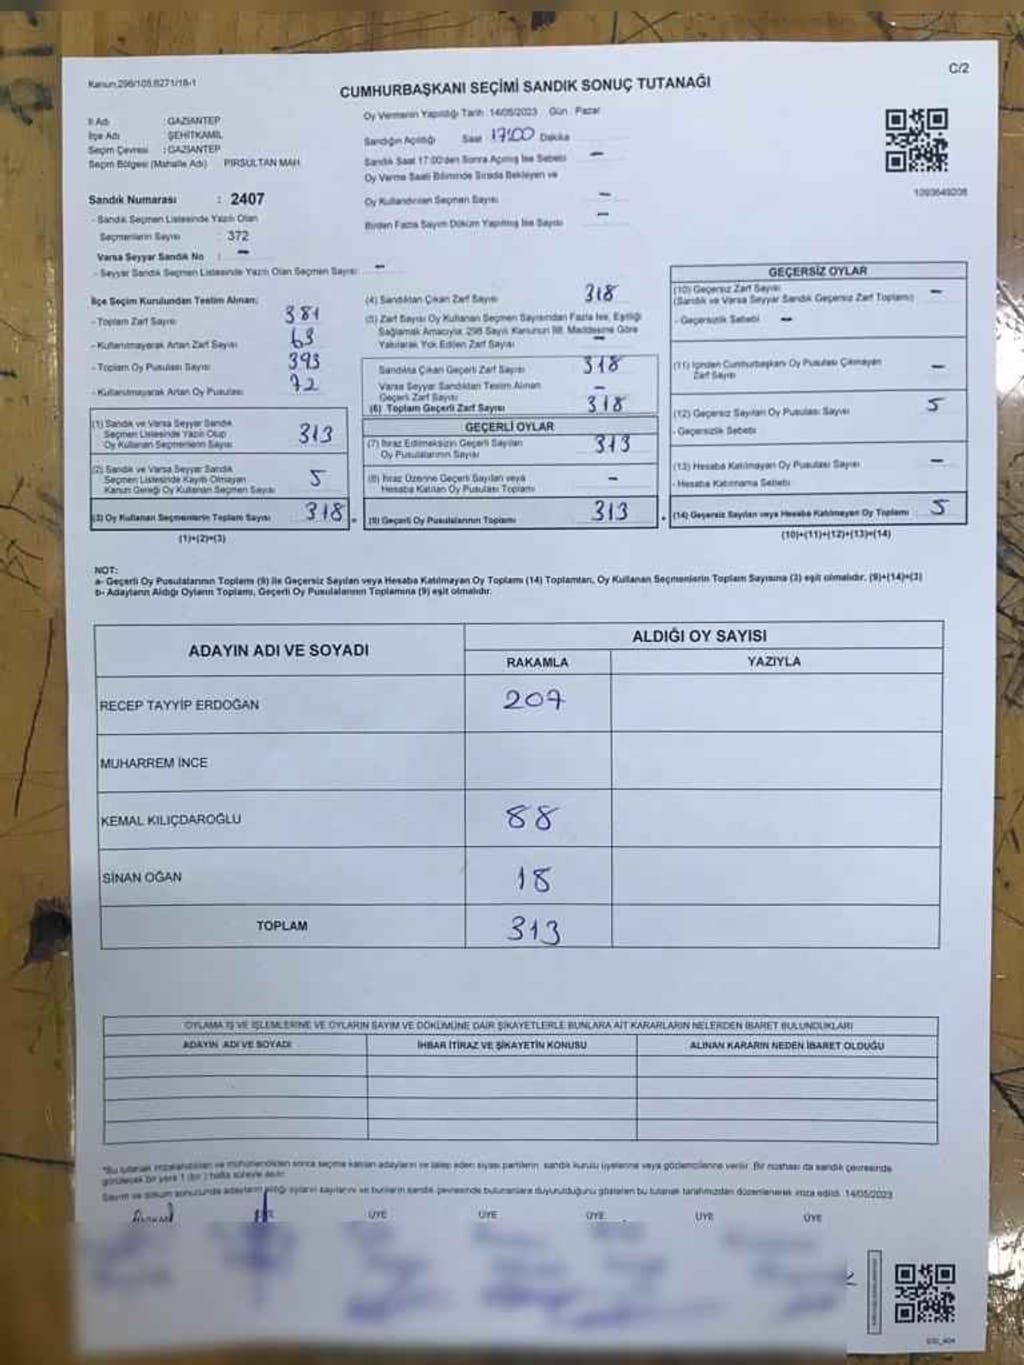 Kanun.298/105.8271/18-1
C/2
CUMHURBAŞKANI SEÇİMİ SANDIK SONUÇ TUTANAĞI
İl Adı : GAZİANTEP
İlçe Adı : ŞEHİTKAMİL
Seçim Çevresi : GAZİANTEP
Seçim Bölgesi (Mahalle Adı) PİRSULTAN MAH.
Oy Vermenin Yapıldığı Tarih : 14/05/2023 Gün : Pazar
Sandığın Açıldığı Saat 17:00 Dakika
Sandık Saat 17:00'den Sonra Açılmış İse Sebebi —
Oy Verme Saati Bitiminde Sırada Bekleyen ve
Oy Kullandırılan Seçmen Sayısı —
Birden Fazla Sayım Döküm Yapılmış İse Sayısı —
1093649208
Sandık Numarası : 2407
- Sandık Seçmen Listesinde Yazılı Olan
Seçmenlerin Sayısı : 372
Varsa Seyyar Sandık No : —
- Seyyar Sandık Seçmen Listesinde Yazılı Olan Seçmen Sayısı —
İlçe Seçim Kurulundan Teslim Alınan:
- Toplam Zarf Sayısı 381
- Kullanılmayarak Artan Zarf Sayısı 63
- Toplam Oy Pusulası Sayısı 393
- Kullanılmayarak Artan Oy Pusulası 72
(1) Sandık ve Varsa Seyyar Sandık
Seçmen Listesinde Yazılı Olup
Oy Kullanan Seçmenlerin Sayısı 313
(2) Sandık ve Varsa Seyyar Sandık
Seçmen Listesinde Kayıtlı Olmayan
Kanun Gereği Oy Kullanan Seçmen Sayısı 5
(3) Oy Kullanan Seçmenlerin Toplam Sayısı 318
(1)+(2)=(3)
(4) Sandıktan Çıkan Zarf Sayısı 318
(5) Zarf Sayısı Oy Kullanan Seçmen Sayısından Fazla İse, Eşitliği
Sağlamak Amacıyla; 298 Sayılı Kanunun 98. Maddesine Göre
Yakılarak Yok Edilen Zarf Sayısı —
Sandıkta Çıkan Geçerli Zarf Sayısı 318
Varsa Seyyar Sandıktan Teslim Alınan
Geçerli Zarf Sayısı —
(6) Toplam Geçerli Zarf Sayısı 318
GEÇERLİ OYLAR
(7) İtiraz Edilmeksizin Geçerli Sayılan
Oy Pusulalarının Sayısı 313
(8) İtiraz Üzerine Geçerli Sayılan veya
Hesaba Katılan Oy Pusulası Toplamı —
(9) Geçerli Oy Pusulalarının Toplamı 313
GEÇERSİZ OYLAR
(10) Geçersiz Zarf Sayısı
(Sandık ve Varsa Seyyar Sandık Geçersiz Zarf Toplamı) —
- Geçersizlik Sebebi —
(11) İçinden Cumhurbaşkanı Oy Pusulası Çıkmayan
Zarf Sayısı —
(12) Geçersiz Sayılan Oy Pusulası Sayısı 5
- Geçersizlik Sebebi
(13) Hesaba Katılmayan Oy Pusulası Sayısı —
- Hesaba Katılmama Sebebi
(14) Geçersiz Sayılan veya Hesaba Katılmayan Oy Toplamı : 5
(10)+(11)+(12)+(13)=(14)
NOT:
a- Geçerli Oy Pusulalarının Toplamı (9) ile Geçersiz Sayılan veya Hesaba Katılmayan Oy Toplamı (14) Toplamları, Oy Kullanan Seçmenlerin Toplam Sayısına (3) eşit olmalıdır. (9)+(14)=(3)
b- Adayların Aldığı Oyların Toplamı, Geçerli Oy Pusulalarının Toplamına (9) eşit olmalıdır.
ADAYIN ADI VE SOYADI
ALDIĞI OY SAYISI
RAKAMLA YAZIYLA
RECEP TAYYİP ERDOĞAN 207
MUHARREM İNCE
KEMAL KILIÇDAROĞLU 88
SİNAN OĞAN 18
TOPLAM 313
OYLAMA İŞ VE İŞLEMLERİNE VE OYLARIN SAYIM VE DÖKÜMÜNE DAİR ŞİKAYETLERLE BUNLARA AİT KARARLARIN NELERDEN İBARET BULUNDUKLARI
ADAYIN ADI VE SOYADI İHBAR İTİRAZ VE ŞİKAYETİN KONUSU ALINAN KARARIN NEDEN İBARET OLDUĞU
*Bu tutanak imzalandıktan ve mühürlendikten sonra seçime katılan adayların ve talep eden siyasi partilerin sandık kurulu üyelerine veya gözlemcilerine verilir. Bir nüshası da sandık çevresinde
görülecek bir yere 1 (bir) hafta süreyle asılır.
Sayım ve döküm sonucunda adayların aldığı oyların sayılarını ve bunların sandık çevresinde bulunanlara duyurulduğunu gösteren bu tutanak tarafımızdan düzenlenerek imza edildi. 14/05/2023
ÜYE ÜYE ÜYE ÜYE ÜYE